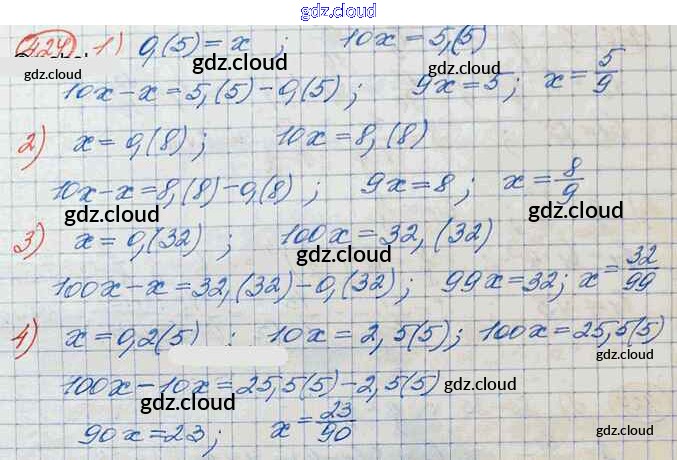 gdz.cloud
424 1) 0,(5)=x ; 10x=5,(5)
gdz.cloud gdz.cloud gdz.cloud
10x-x=5,(5)-0,(5) ; 9x=5 ; x=5/9
2) x=0,(8) ; 10x=8,(8)
10x-x=8,(8)-0,(8) ; 9x=8 ; x=8/9
gdz.cloud gdz.cloud
3) x=0,(32) ; 100x=32,(32)
gdz.cloud
100x-x=32,(32)-0,(32) ; 99x=32 ; x=32/99
4) x=0,2(5) ; 10x=2,5(5) ; 100x=25,5(5)
gdz.cloud
100x-10x=25,5(5)-2,5(5)
gdz.cloud
90x=23 ; x=23/90
gdz.cloud gdz.cloud